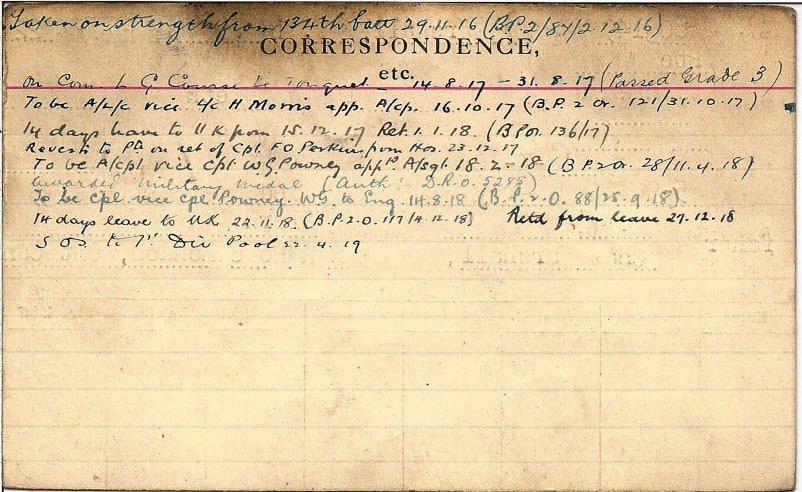 Taken on strength from 134th batt 29.11.16 (B.P.2/87/2.12.16)
CORRESPONDENCE,
etc.
On Com. L G Course le Touquet - 14.8.17 - 31.8.17 (Passed Grade 3)
To be A/L/c vice L/c H Morris app. A/cp. 16.10.17 (B.P. 2 Or. 121/31.10.17)
14 days leave to UK from 15.12.17 Ret. 1.1.18. (B P Or. 136/17)
Reverts to Pte on ret of Cpl. F O Perkin from Hos. 23.12.17
To be A/cpl. vice Cpl W G Powney appd A/sgt. 18.2-18 (B.P.2 Or. 28/11.4.18)
Awarded Military Medal (Auth: D.R.O. 5285)
To be Cpl vice Cpl Powney. WG. to Eng. 14.8.18 (B.P.2.O. 88/25.9.18)
14 days leave to UK 22.11.18. (B.P.2.O. 117/4.12.18) Retd from leave 27.12.18
S O S to 1st Div Pool 22.4.19